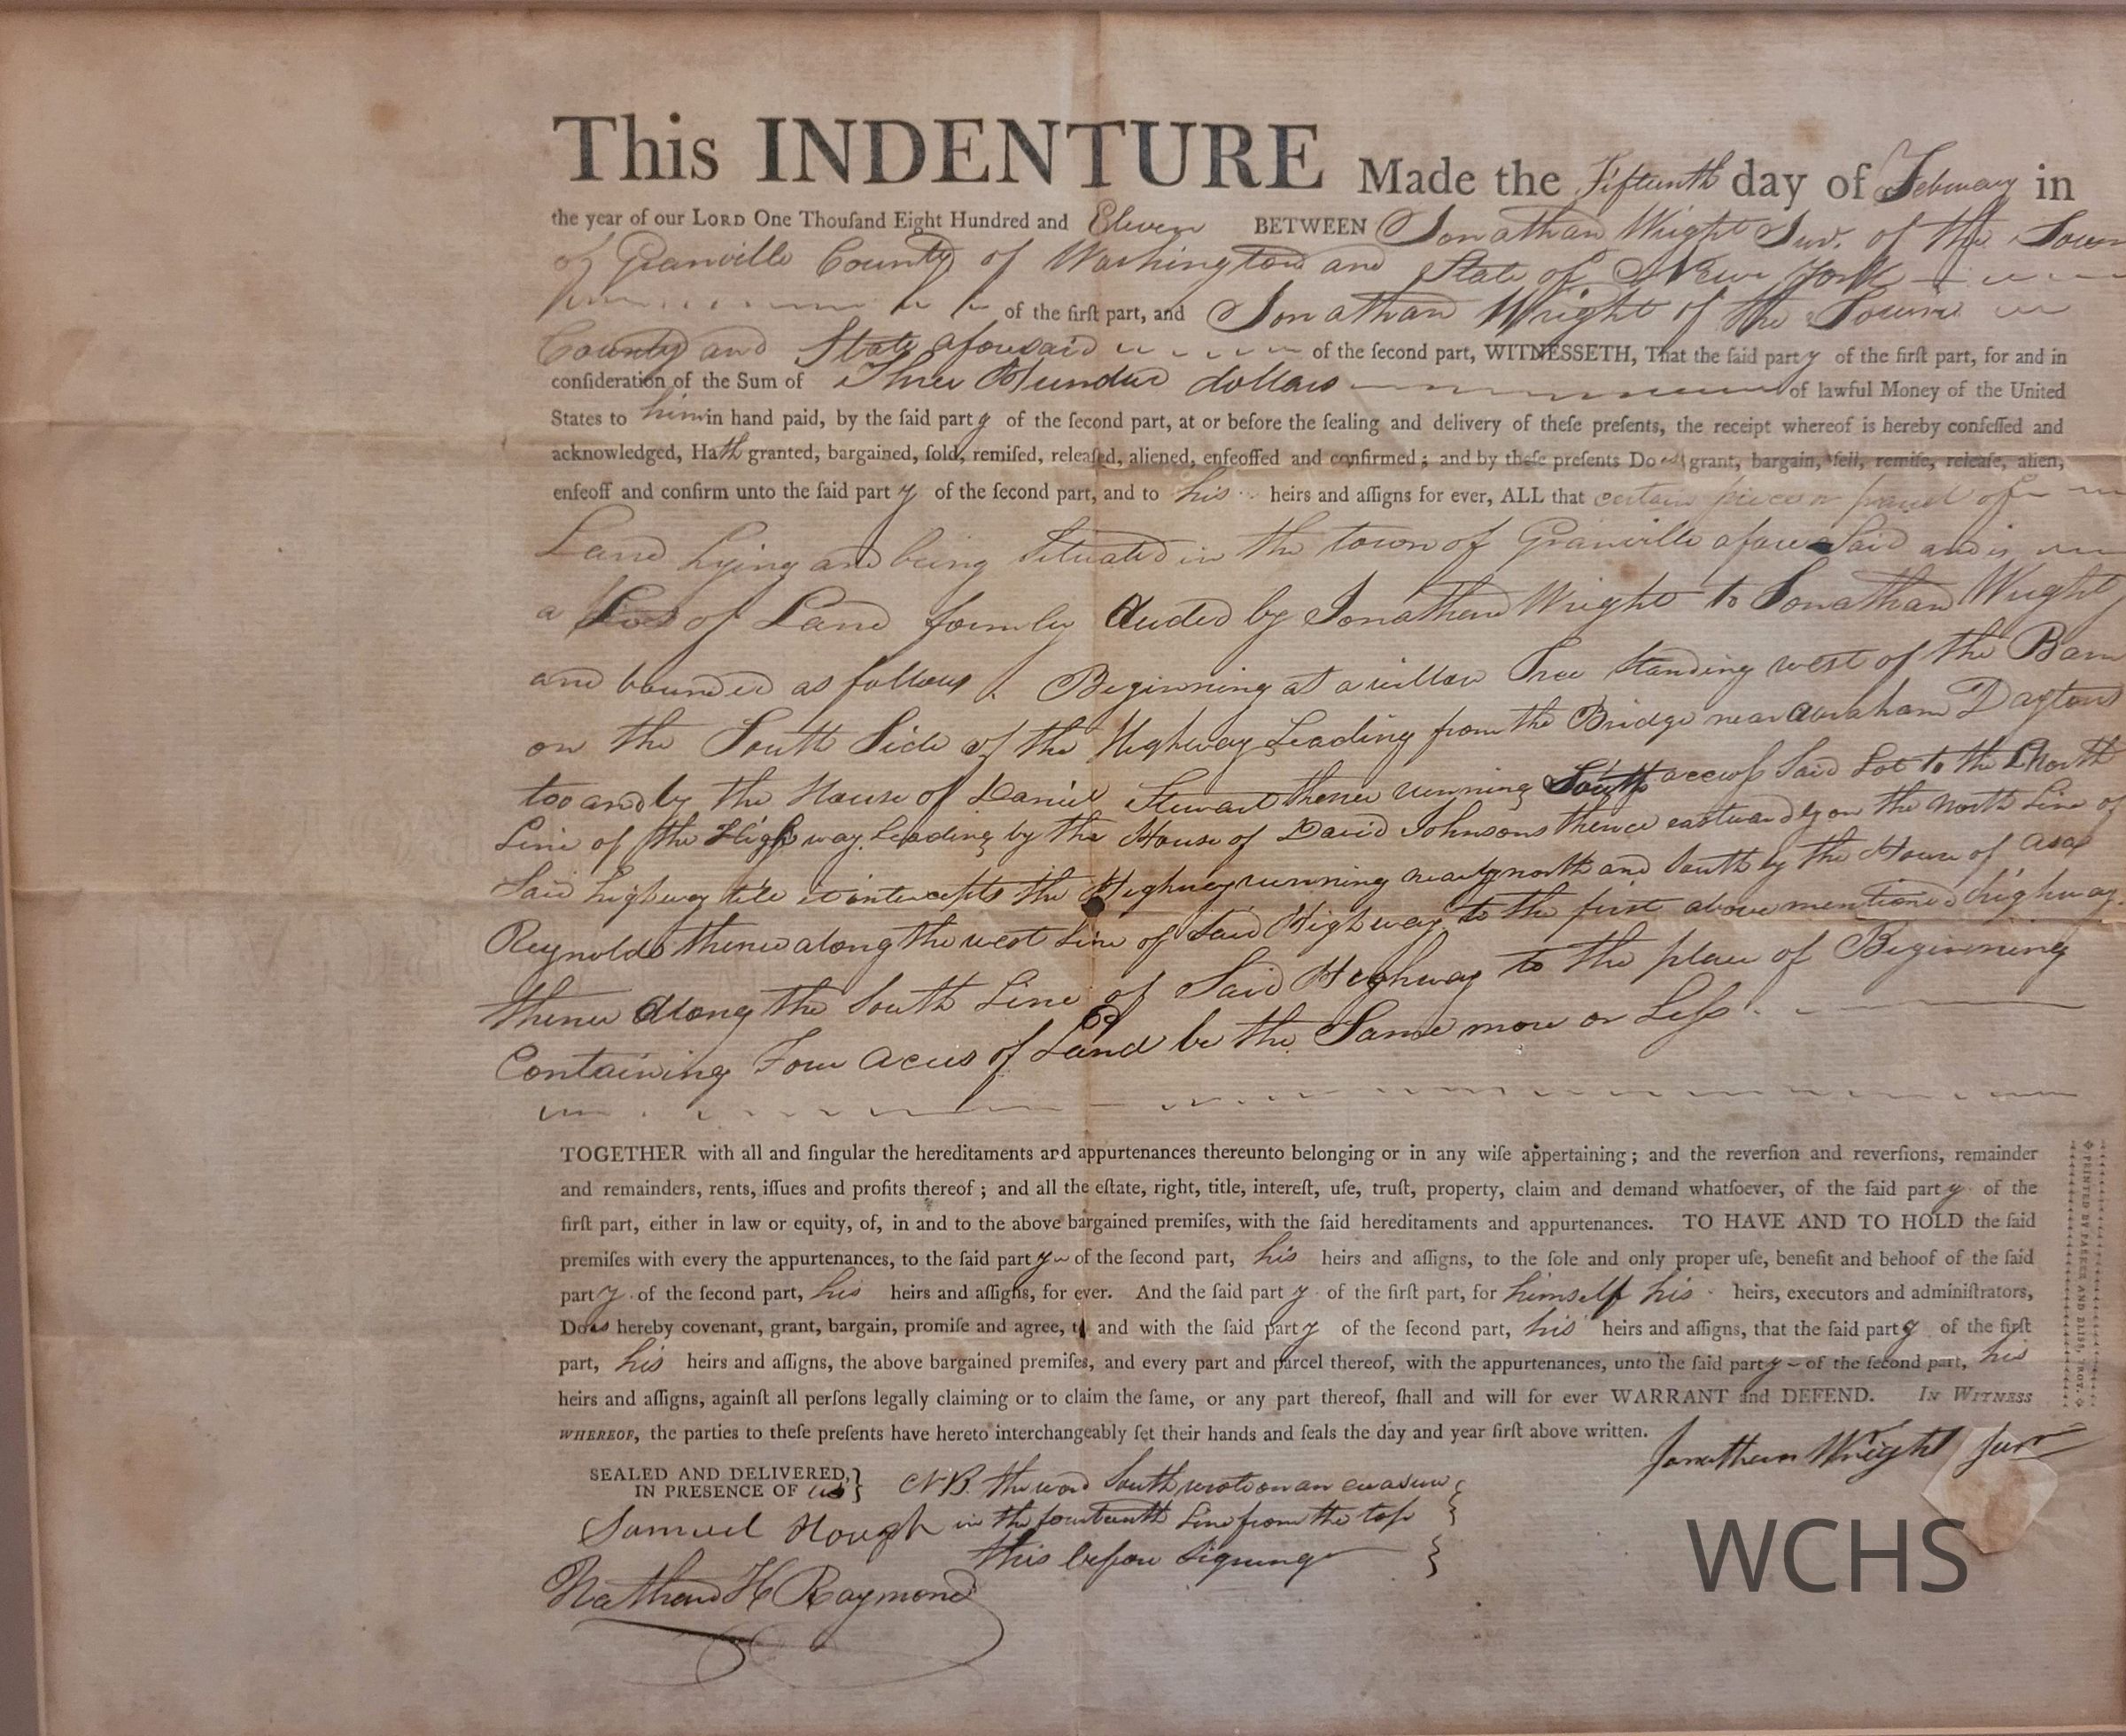 This INDENTURE Made the Fifteenth day of February in
the year of our LORD One Thouſand Eight Hundred and Eleven BETWEEN Jonathan Wright Junr. of the Town
of Granville County of Washington and State of New York
of the firſt part, and Jonathan Wright of the Town
County and State aforesaid of the ſecond part, WITNESSETH, That the ſaid party of the firſt part, for and in
conſideration of the Sum of Three Hundred dollars of lawful Money of the United
States to him in hand paid, by the ſaid party of the ſecond part, at or before the ſealing and delivery of theſe preſents, the receipt whereof is hereby confeſſed and
acknowledged, Hath granted, bargained, ſold, remiſed, releaſed, aliened, enfeoffed and confirmed; and by theſe preſents Does grant, bargain, ſell, remiſe, releaſe, alien,
enfeoff and confirm unto the ſaid party of the ſecond part, and to his heirs and aſſigns for ever, ALL that certain piece or parcel of
Land Lying and being Situated in the town of Granville afore Said and is
a of Land formley deeded by Jonathan Wright to Jonathan Wright
and bounded as follows. Beginning at a willow Tree Standing west of the Barn
on the South Side of the Highway Leading from the Bridge near Abraham Daytons
too and by the House of Daniel Stewart thence running South accross Said Lot to the North
Line of the Highway leading by the House of David Johnsons thence eastwardly on the North Line of
Said highway till it intercepts the Highway running nearly north and South by the House of Asa
Reynolds thence along the west Line of Said Highway to the first above mentioned highway
thence along the South Line of Said Highway to the place of Beginning
Containing Four acres of Land be the Same more or Leſs
TOGETHER with all and ſingular the hereditaments and appurtenances thereunto belonging or in any wiſe appertaining; and the reverſion and reverſions, remainder
and remainders, rents, iſſues and profits thereof; and all the eſtate, right, title, intereſt, uſe, truſt, property, claim and demand whatſoever, of the ſaid party of the
firſt part, either in law or equity, of, in and to the above bargained premiſes, with the ſaid hereditaments and appurtenances. TO HAVE AND TO HOLD the ſaid
premiſes with every the appurtenances, to the ſaid party of the ſecond part, his heirs and aſſigns, to the ſole and only proper uſe, benefit and behoof of the ſaid
party of the ſecond part, his heirs and aſſigns, for ever. And the ſaid party of the firſt part, for himself his heirs, executors and adminiſtrators,
Does hereby covenant, grant, bargain, promiſe and agree, to and with the ſaid party of the ſecond part, his heirs and aſſigns, that the ſaid party of the firſt
part, his heirs and aſſigns, the above bargained premiſes, and every part and parcel thereof, with the appurtenances, unto the ſaid party of the ſecond part, his
heirs and aſſigns, againſt all perſons legally claiming or to claim the ſame, or any part thereof, ſhall and will for ever WARRANT and DEFEND. IN WITNESS
WHEREOF, the parties to theſe preſents have hereto interchangeably ſet their hands and ſeals the day and year firſt above written.
PRINTED BY PARKER AND BLISS, TROY.
Jonathan Wright Junr
SEALED AND DELIVERED,
IN PRESENCE OF us
NB. the word South wrote on an erasure
in the fourteenth Line from the top
this before Signing
Samuel Hough
Nathan H Raymond
WCHS